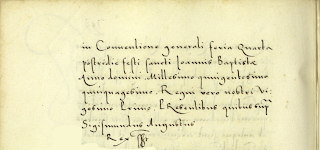 in Conventione generali feria Quarta
postridie festi sancti Ioannis Baptistæ
Anno domini Millesimo quingentesimo
quinquagesimo, Regni vero nostri Vi⸗
gesimo primo, Præsentibus quibus supra
Sigismundus Augustus
Rex